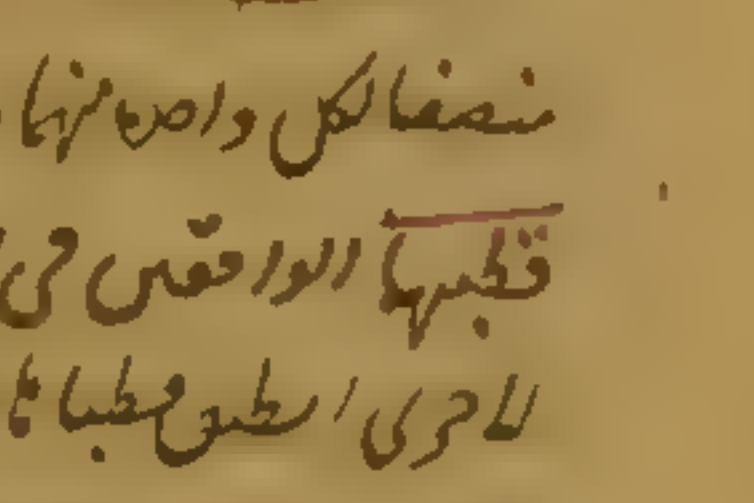 منصفا لكل واحد منهما
قطبيها الواقعين في
للاخرى انطبق قطباها